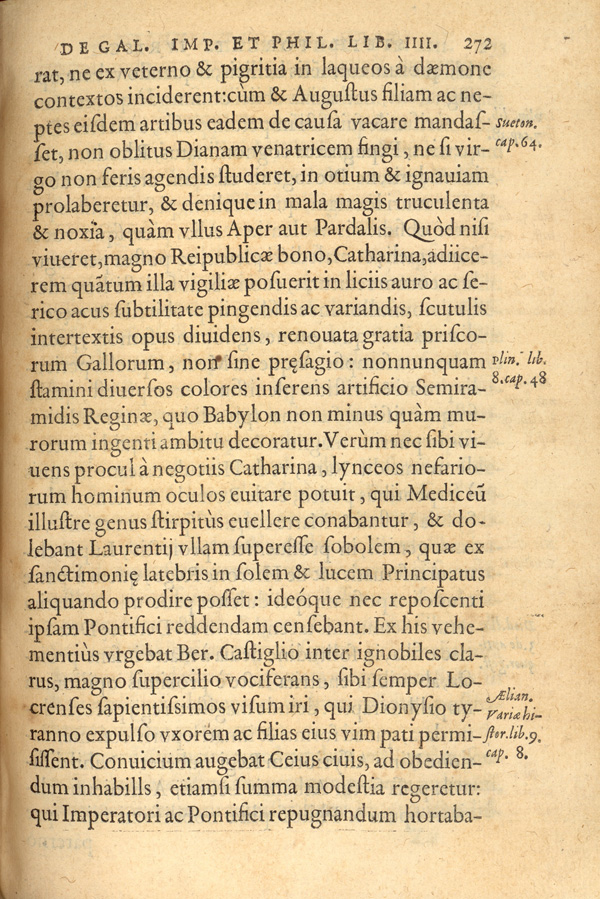 DE GAL. IMP. ET PHIL. LIB. IIII. 272
rat, ne ex veterno & pigritia in laqueos à dæmone
contextos inciderent:cùm & Auguſtus filiam ac ne-
ptes eiſdem artibus eadem de cauſa vacare mandaſ-
ſet, non oblitus Dianam venatricem fingi, ne ſi vir-
go non feris agendis ſtuderet, in otium & ignauiam
prolaberetur, & denique in mala magis truculenta
& noxia, quàm vllus Aper aut Pardalis. Quòd niſi
viueret,magno Reipublicæ bono,Catharina,adiice-
rem quãtum illa vigiliæ poſuerit in liciis auro ac ſe-
rico acus ſubtilitate pingendis ac variandis, ſcutulis
intertextis opus diuidens, renouata gratia priſco-
rum Gallorum, non ſine pręſagio: nonnunquam
ſtamini diuerſos colores inſerens artificio Semira-
midis Reginæ, quo Babylon non minus quàm mu-
rorum ingenti ambitu decoratur.Verùm nec ſibi vi-
uens procul à negotiis Catharina, lynceos nefario-
rum hominum oculos euitare potuit, qui Mediceũ
illuſtre genus ſtirpitùs euellere conabantur, & do-
lebant Laurentij vllam ſupereſſe ſobolem, quæ ex
ſanctimonię latebris in ſolem & lucem Principatus
aliquando prodire poſſet: ideóque nec repoſcenti
ipſam Pontifici reddendam cenſebant. Ex his vehe-
mentiùs vrgebat Ber. Caſtiglio inter ignobiles cla-
rus, magno ſupercilio vociferans, ſibi ſemper Lo-
crenſes ſapientiſſimos viſum iri, qui Dionyſio ty-
ranno expulſo vxorem ac filias eius vim pati permi-
ſiſſent. Conuicium augebat Ceius ciuis, ad obedien-
dum inhabills, etiamſi ſumma modeſtia regeretur:
qui Imperatori ac Pontifici repugnandum hortaba-
Sueton.
cap.64.
plin. lib.
8.cap.48
Ælian.
Variæ hi-
ſtor.lib.9.
cap. 8.